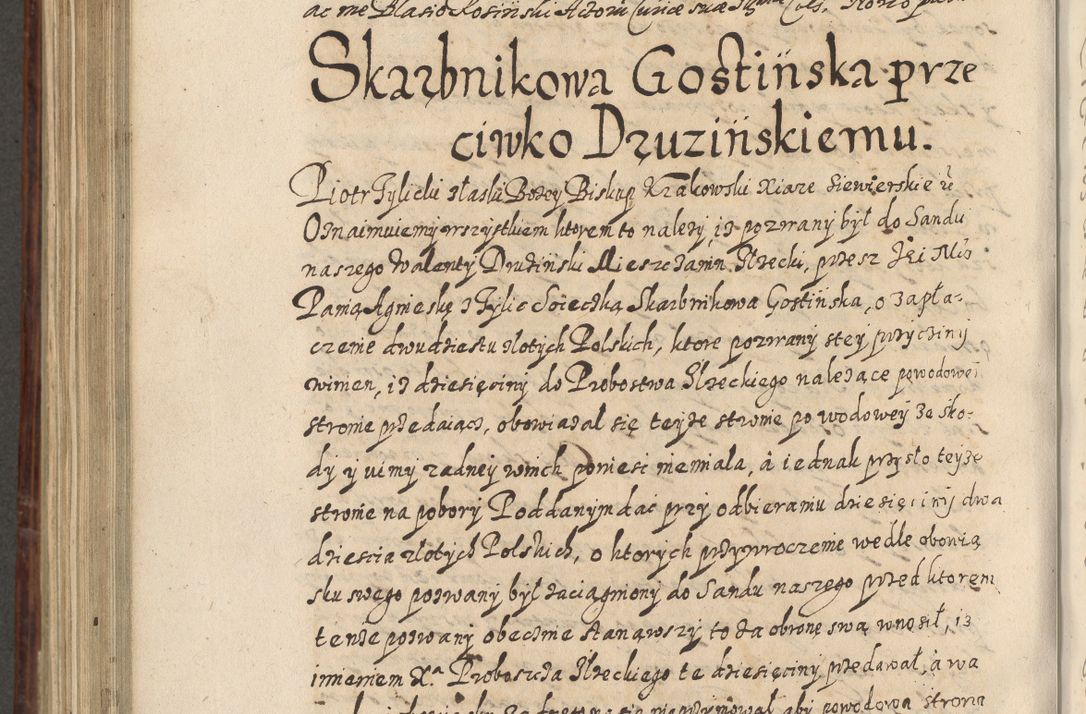 ac me Blasio Kosiński Actorū Curiæ suæ
Skarbnikowa Gostińska prze
ciwko Drużińskiemu.
Piotr Tylicki z łaski Bożey Biskup Krakowski Xiąże Siewierskie
Oznaimuiemy wszystkiem ktorem to należy, iż pozwany był do Sandu
naszego Walenty Drużiński Miesczanin Iłzecki, przez Jei Mć
Panią Agnieskę z Tylic Sciecżką Skarbnikowa Gostińska, o zapła-
czenie dwudziestu złotych Polskich, ktore pozwany stey przycziny
winien, iż dziesięciny do Probostwa Iłzeckiego należące powodowei
stronie przedaiącz, obowiązał się teyże stronie powodowey że sko-
dy y uimy żadney wnich poniesć niemiala, a iednak przysło teyże
stronie na pobory Poddanym dać przy odbieraniu dziesięciny dwa
dziescia złotych Polskich, o ktorych przywroczenie wedle obowią
sku swego pozwany był zaciągniony do Sandu naszego przed ktorem
tenże pozwany obecznie stanąwszy to za obronę swą wnosił, iż
imieniem Xᵃ Proboscza Iłzeckiego te dziesięciny przedawał, a wa
aby powodowa strona